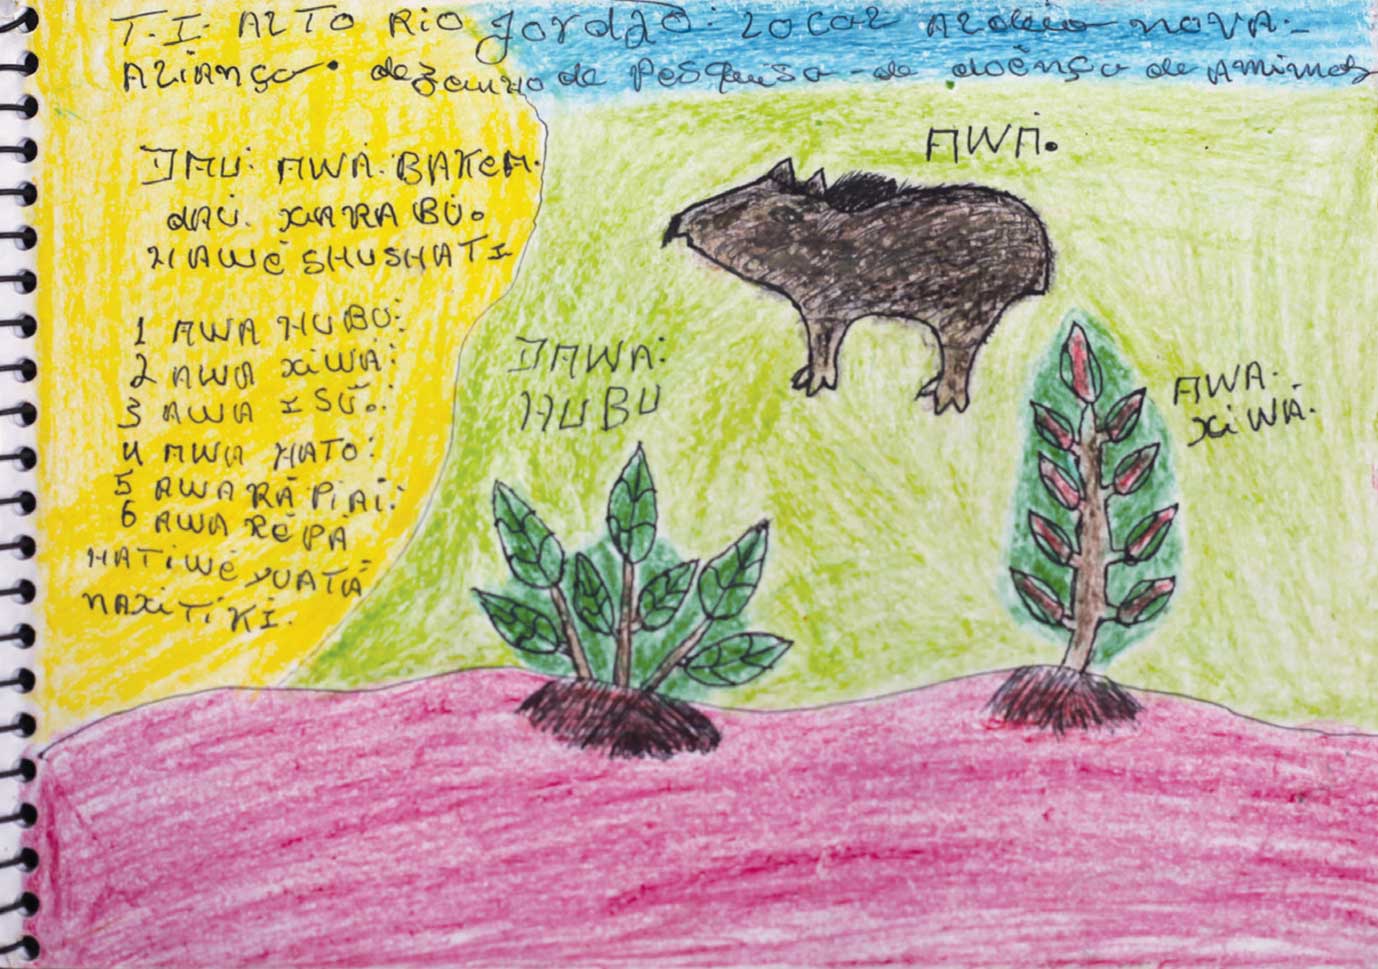 T.I. ALTO RiO JoRdãO: LOCAL ALdeia NOVA-
ALiANçA. dezenho de Pesquisa de doênça de Animas
DAU: AWA. BAKEA.
dAÚ. XARABU.
HAWÊ SHUSHATI
1 AWA HUBU:
2 AWA XiWÃ:
3 AWA ISŨ.:
4 AWA HATO:
5 AWA RÃ PIAI:
6 AWA RÊPÃ
HATIWÊ YUATÃ
NAXiTiKI.
AWA.
DAWA:
HUBU
AWA.
XiWÃ.